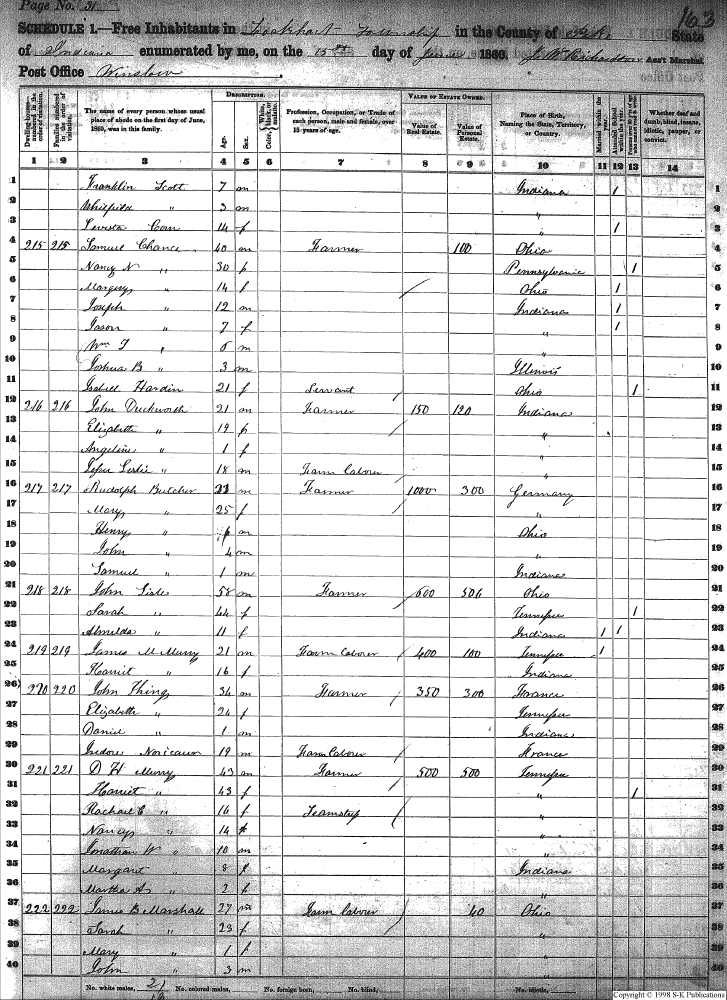 Page No. 31
163
SCHEDULE 1.—Free Inhabitants in Lockhart Township in the County of Pike State
of Indiana enumerated by me, on the 15th day of June 1860. J. W. Richardson Ass't Marshal.
Post Office Winslow
Dwelling-houses— numbered in the order of visitation. Families numbered in the order of visitation. The name of every person whose usual place of abode on the first day of June, 1860, was in this family. DESCRIPTION. Age. Sex. White, Color, black, or mulatto. Profession, Occupation, or Trade of each person, male and female, over 15 years of age. VALUE OF ESTATE OWNED. Value of Real Estate. Value of Personal Estate. Place of Birth, Naming the State, Territory, or Country. Married within the year. Attended School within the year. Whether deaf and dumb, blind, insane, idiotic, pauper, or convict.
1 2 3 4 5 6 7 8 9 10 11 12 13 14
1 Franklin Scott 7 m Indiana / 1
2 Whitfield " 3 m " 2
3 Corn 14 f " / 3
4 215 215 Samuel Chance 40 m Farmer 100 Ohio 4
5 Nancy N " 30 f Pennsylvania / 5
6 Margery " 14 f Ohio / 6
7 Joseph " 12 m Indiana / 7
8 Jason " 7 f " / 8
9 Wm T " 6 m " 9
10 Joshua B " 3 m Illinois 10
11 Isabell Hardin 21 f Servant Ohio / 11
12 216 216 John Duckworth 21 m Farmer 150 120 Indiana 12
13 Elizabeth " 19 f " 13
14 Angeline " 1 f " 14
15 Leslie " 18 m Farm Laborer " 15
16 217 217 Rudolph Butcher 33 m Farmer 1000 300 Germany 16
17 Mary " 25 f " 17
18 Henry " 6 m Ohio 18
19 John " 4 m " 19
20 Samuel " 1 m Indiana 20
21 218 218 John Sisle 58 m Farmer 600 506 Ohio 21
22 Sarah " 44 f Tennessee / 22
23 Almelda " 11 f Indiana / / 23
24 219 219 James M Murry 21 m Farm Laborer 400 100 Tennessee / 24
25 Harriet " 16 f Indiana 25
26 220 220 John Thing 34 m Farmer 350 300 France 26
27 Elizabeth " 24 f Tennessee 27
28 Daniel " 1 m Indiana 28
29 Isedore 19 m Farm Laborer France 29
30 221 221 D H Murry 43 m Farmer 500 500 Tennessee 30
31 Harriet " 43 f " / 31
32 Rachael C " 16 f " 32
33 Nancy " 14 f " 33
34 Jonathan W " 10 m " 34
35 Margaret " 8 f Indiana 35
36 Martha A " 2 f " 36
37 222 222 James B Marshall 27 m Farm Laborer 40 Ohio 37
38 Sarah " 23 f " 38
39 Mary " 1 f 39
40 John " 3 m 40
No. white males, 21 No. colored males, No. foreign born, No. blind, No. idiotic,
Copyright © 1998 S-K Publications